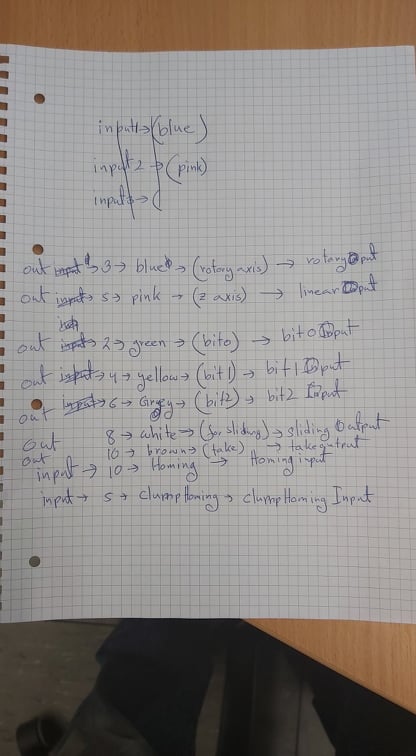 input1→(blue)
input2→(pink)
input→(
out input → 3 → blue → (rotary axis) → rotary Output
out input → 5 → pink → (z axis) → linear Output
out input → 2 → green → (bit0) → bit0 Input
out input → 4 → yellow → (bit1) → bit1 Input
out input → 6 → Grey → (bit2) → bit2 Input
Out 8 → white → (for sliding) → sliding Output
out 10 → brown → (take) → take output
input → 10 → Homing → Homing input
input → 5 → clump Homing → clump Homing Input